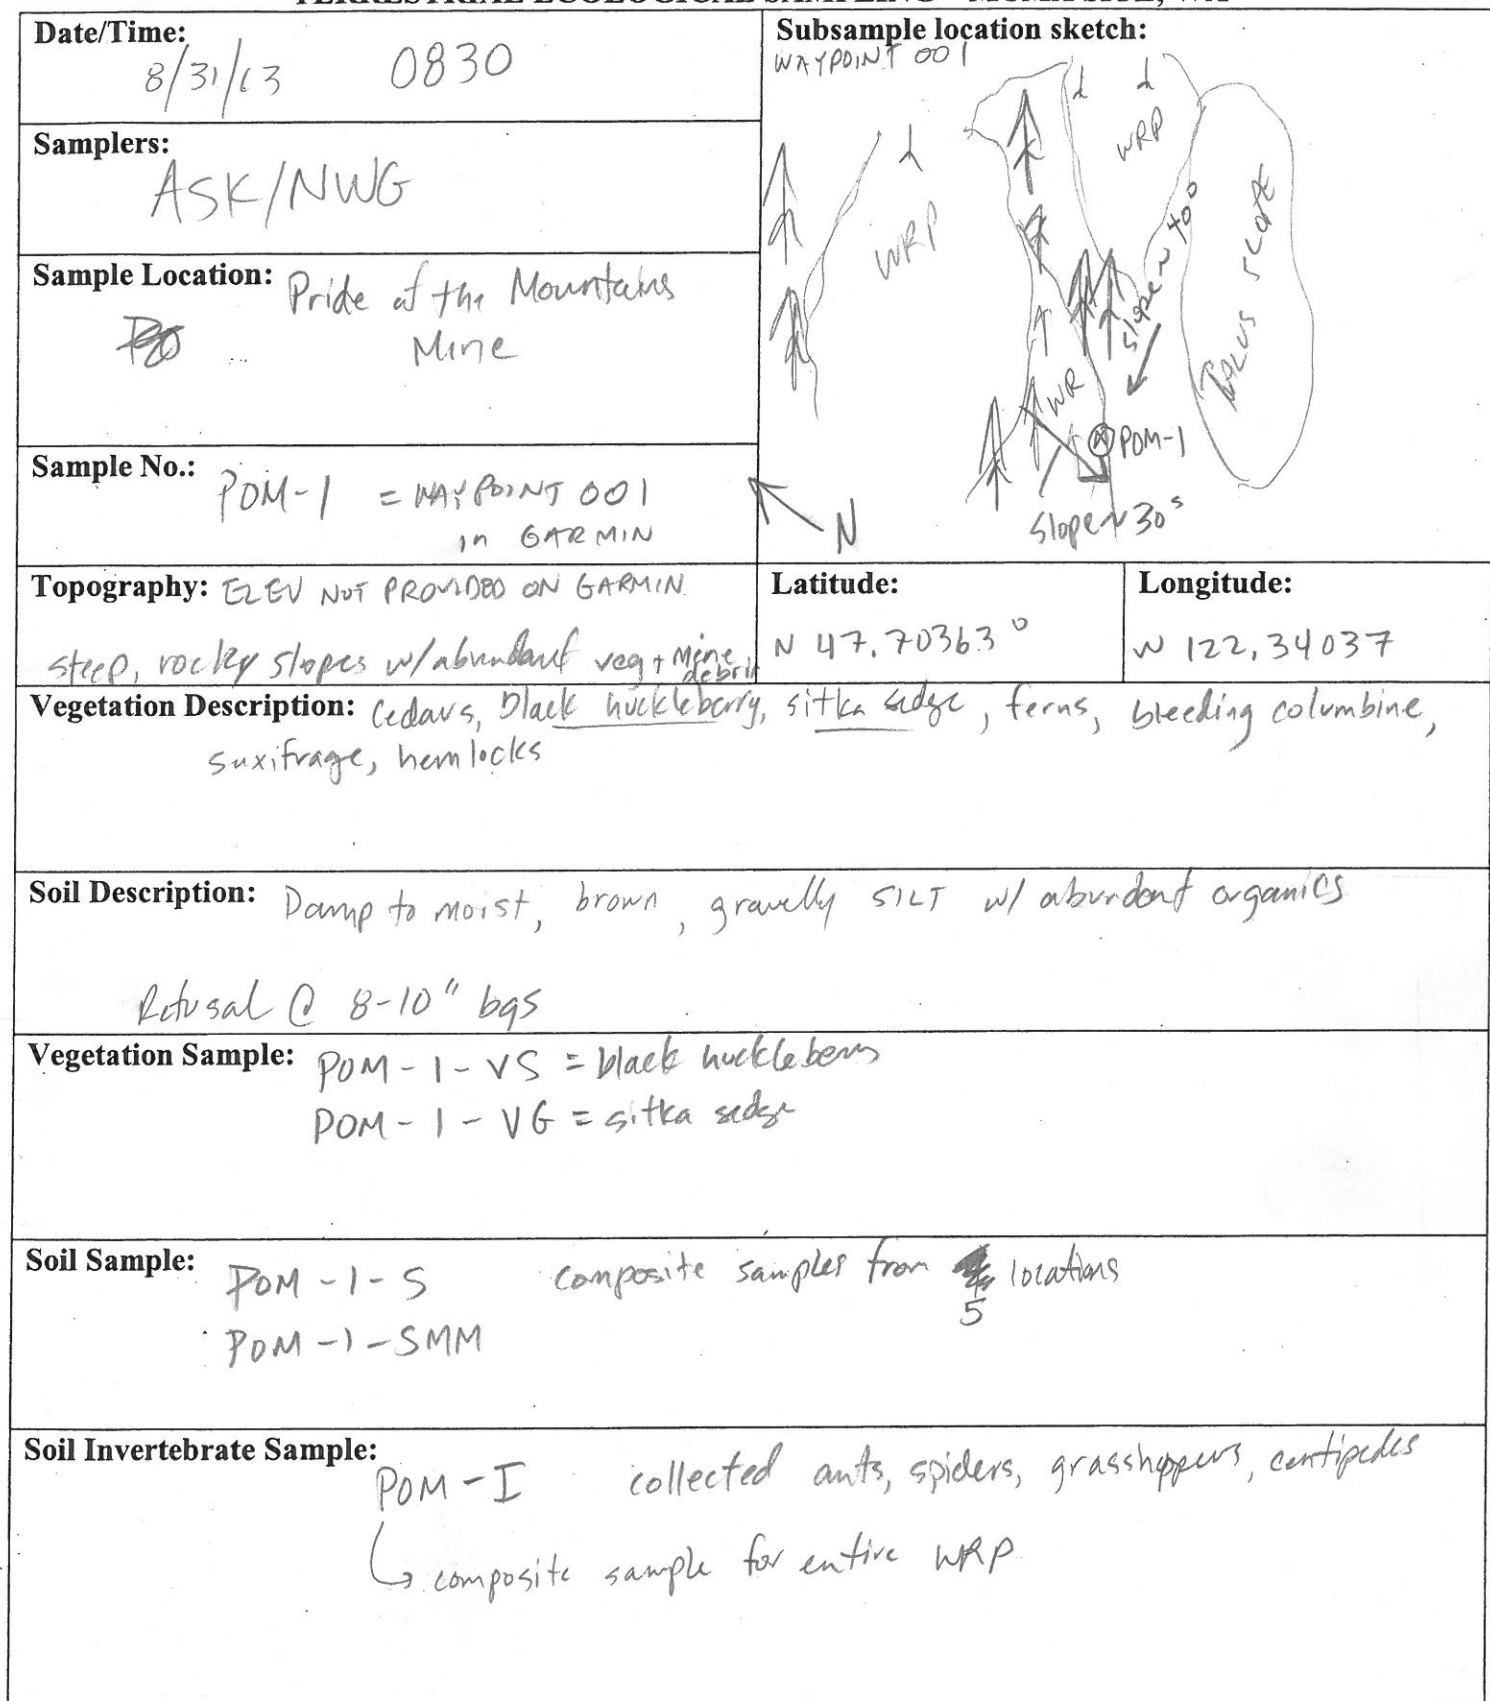 Date/Time:
8/31/13 0830
Samplers:
ASK/NWG
Sample Location: Pride of the Mountains
Mine
Sample No.: POM-1 = WAYPOINT 001
in GARMIN
Subsample location sketch:
WAYPOINT 001
WRP
WRP
slope ~ 40°
TALUS SLOPE
WR
POM-1
slope ~ 30°
N
Topography: ELEV NOT PROVIDED ON GARMIN
steep, rocky slopes w/abundant veg + Mine
debris
Latitude:
N 47.70363°
Longitude:
W 122.34037
Vegetation Description: Cedars, black huckleberry, sitka sedge, ferns, bleeding columbine,
suxifrage, hemlocks
Soil Description: Damp to moist, brown, gravelly SILT w/ abundant organics
Refusal @ 8-10" bgs
Vegetation Sample: POM-1-VS = black huckleberry
POM-1-VG = sitka sedge
Soil Sample: POM-1-S composite samples from locations
5
POM-1-SMM
Soil Invertebrate Sample:
POM-I collected ants, spiders, grasshoppers, centipedes
composite sample for entire WRP